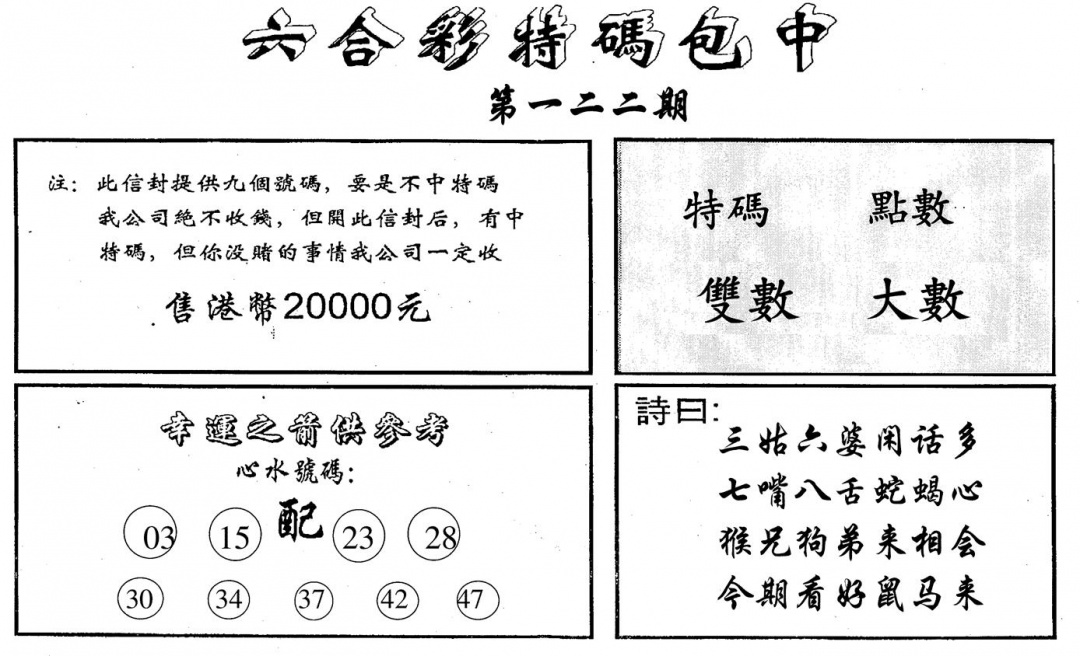 六合彩特碼包中
第一二二期
注：此信封提供九個號碼，要是不中特碼
我公司絶不收錢，但開此信封后，有中
特碼，但你没賭的事情我公司一定收
售港幣20000元
特碼 點數
雙數 大數
幸運之箭供參考
心水號碼：
配
03 15 23 28
30 34 37 42 47
詩曰：
三姑六婆闲话多
七嘴八舌蛇蝎心
猴兄狗弟来相会
今期看好鼠马来